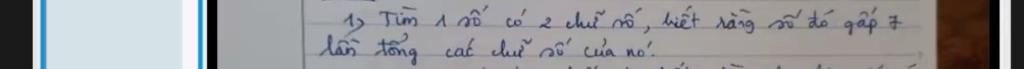 1, Tìm 1 số có 2 chữ số, biết rằng số đó gấp 7
lần tổng các chữ số của nó.